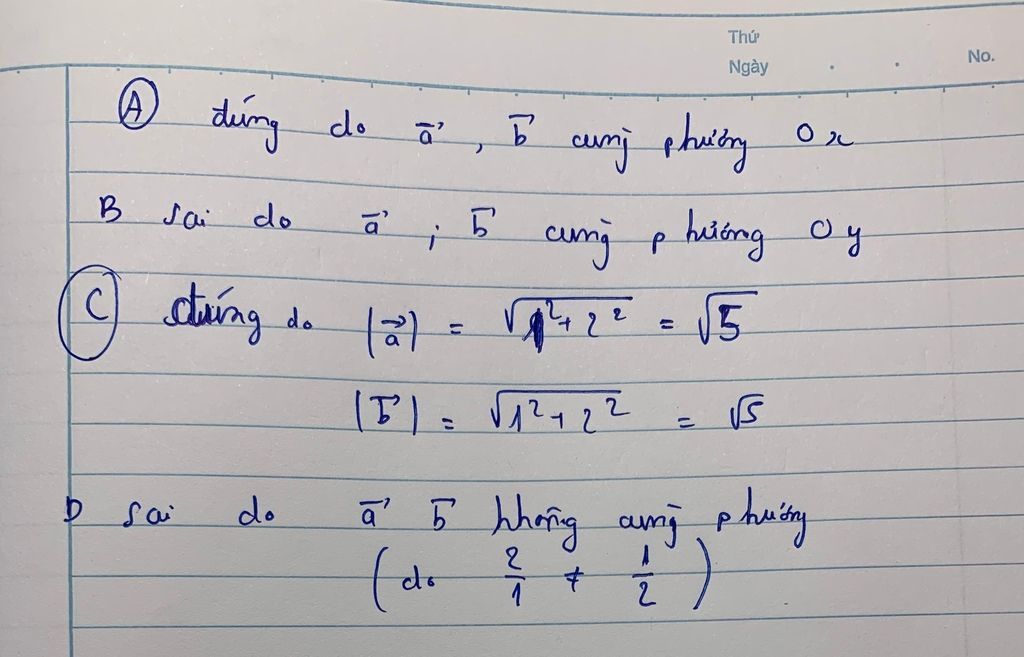 Thứ
Ngày . . No.
A đúng do a⃗, b⃗ cùng phương Ox
B sai do a⃗; b⃗ cùng phương Oy
C đúng do |a⃗| = √(1² + 2²) = √5
|b⃗| = √(1² + 2²) = √5
D sai do a⃗ b⃗ không cùng phương
(do 2/1 ≠ 1/2)